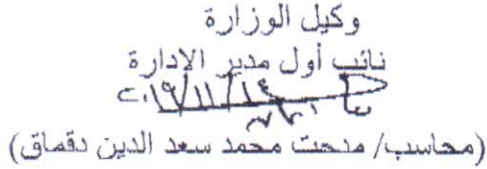 وكيل الوزارة
نائب أول مدير الإدارة
٢٠١٩/١١/١٤
(محاسب/ مدحت محمد سعد الدين دقماق)